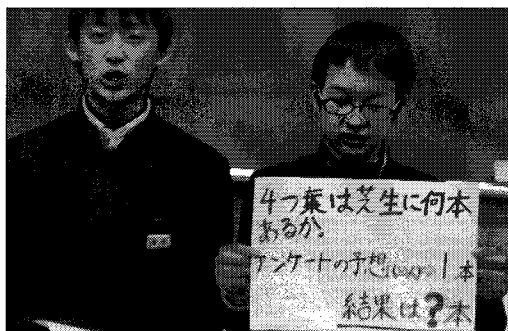 4つ葉は芝生に何本
あるか。
アンケートの予想 1本
結果は?本